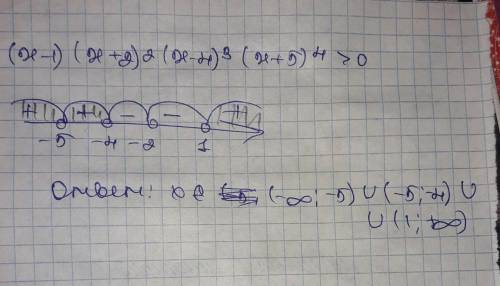 (x-1) (x+2)2 (x-4)3 (x+5)4 >0
+ + - - +
-5 -4 -2 1
Ответ: x∈ (-∞; -5) ∪ (-5; -4) ∪
∪ (1; +∞)